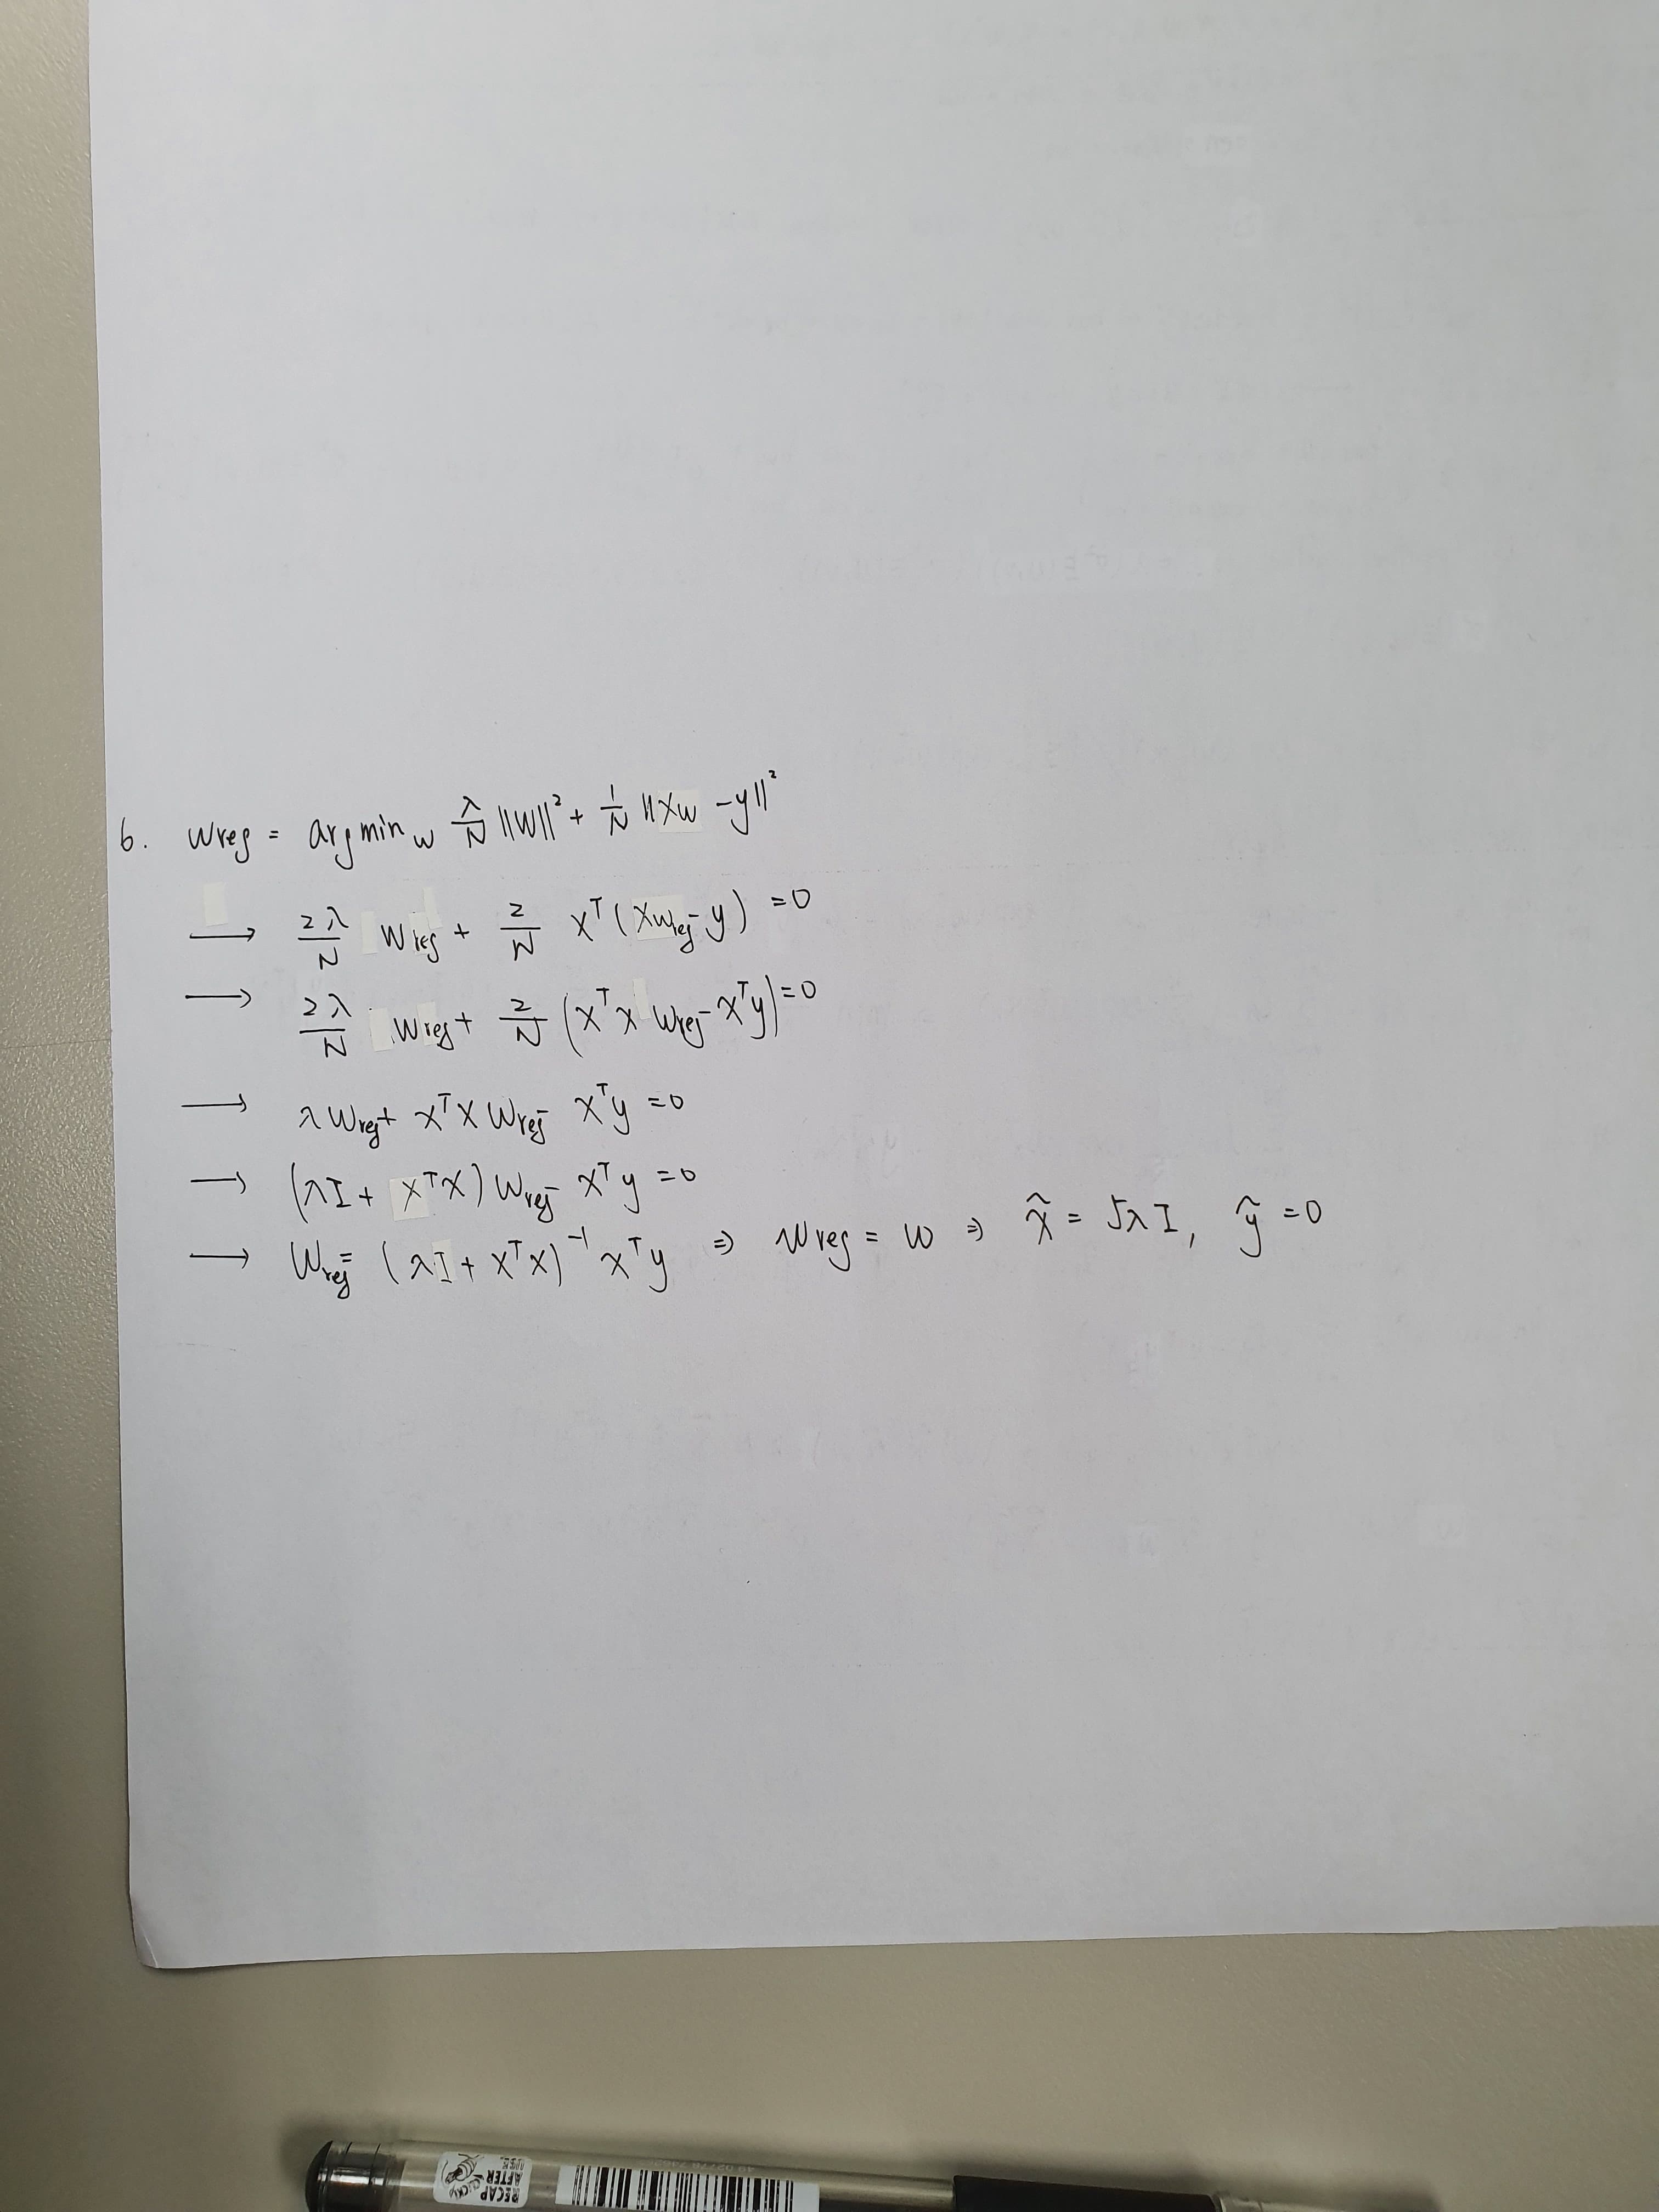 6. Wreg = argmin w λ/N ||W||² + 1/N ||Xw - y||²
→ 2λ/N Wreg + 2/N Xᵀ(Xwreg - y) = 0
→ 2λ/N Wreg + 2/N (XᵀX Wreg - Xᵀy) = 0
→ λWreg + XᵀX Wreg - Xᵀy = 0
→ (λI + XᵀX) Wreg - Xᵀy = 0
→ Wreg = (λI + XᵀX)⁻¹ Xᵀy ⇒ Wreg = W ⇒ X̃ = √λ I, ỹ = 0
RECAP
AFTER